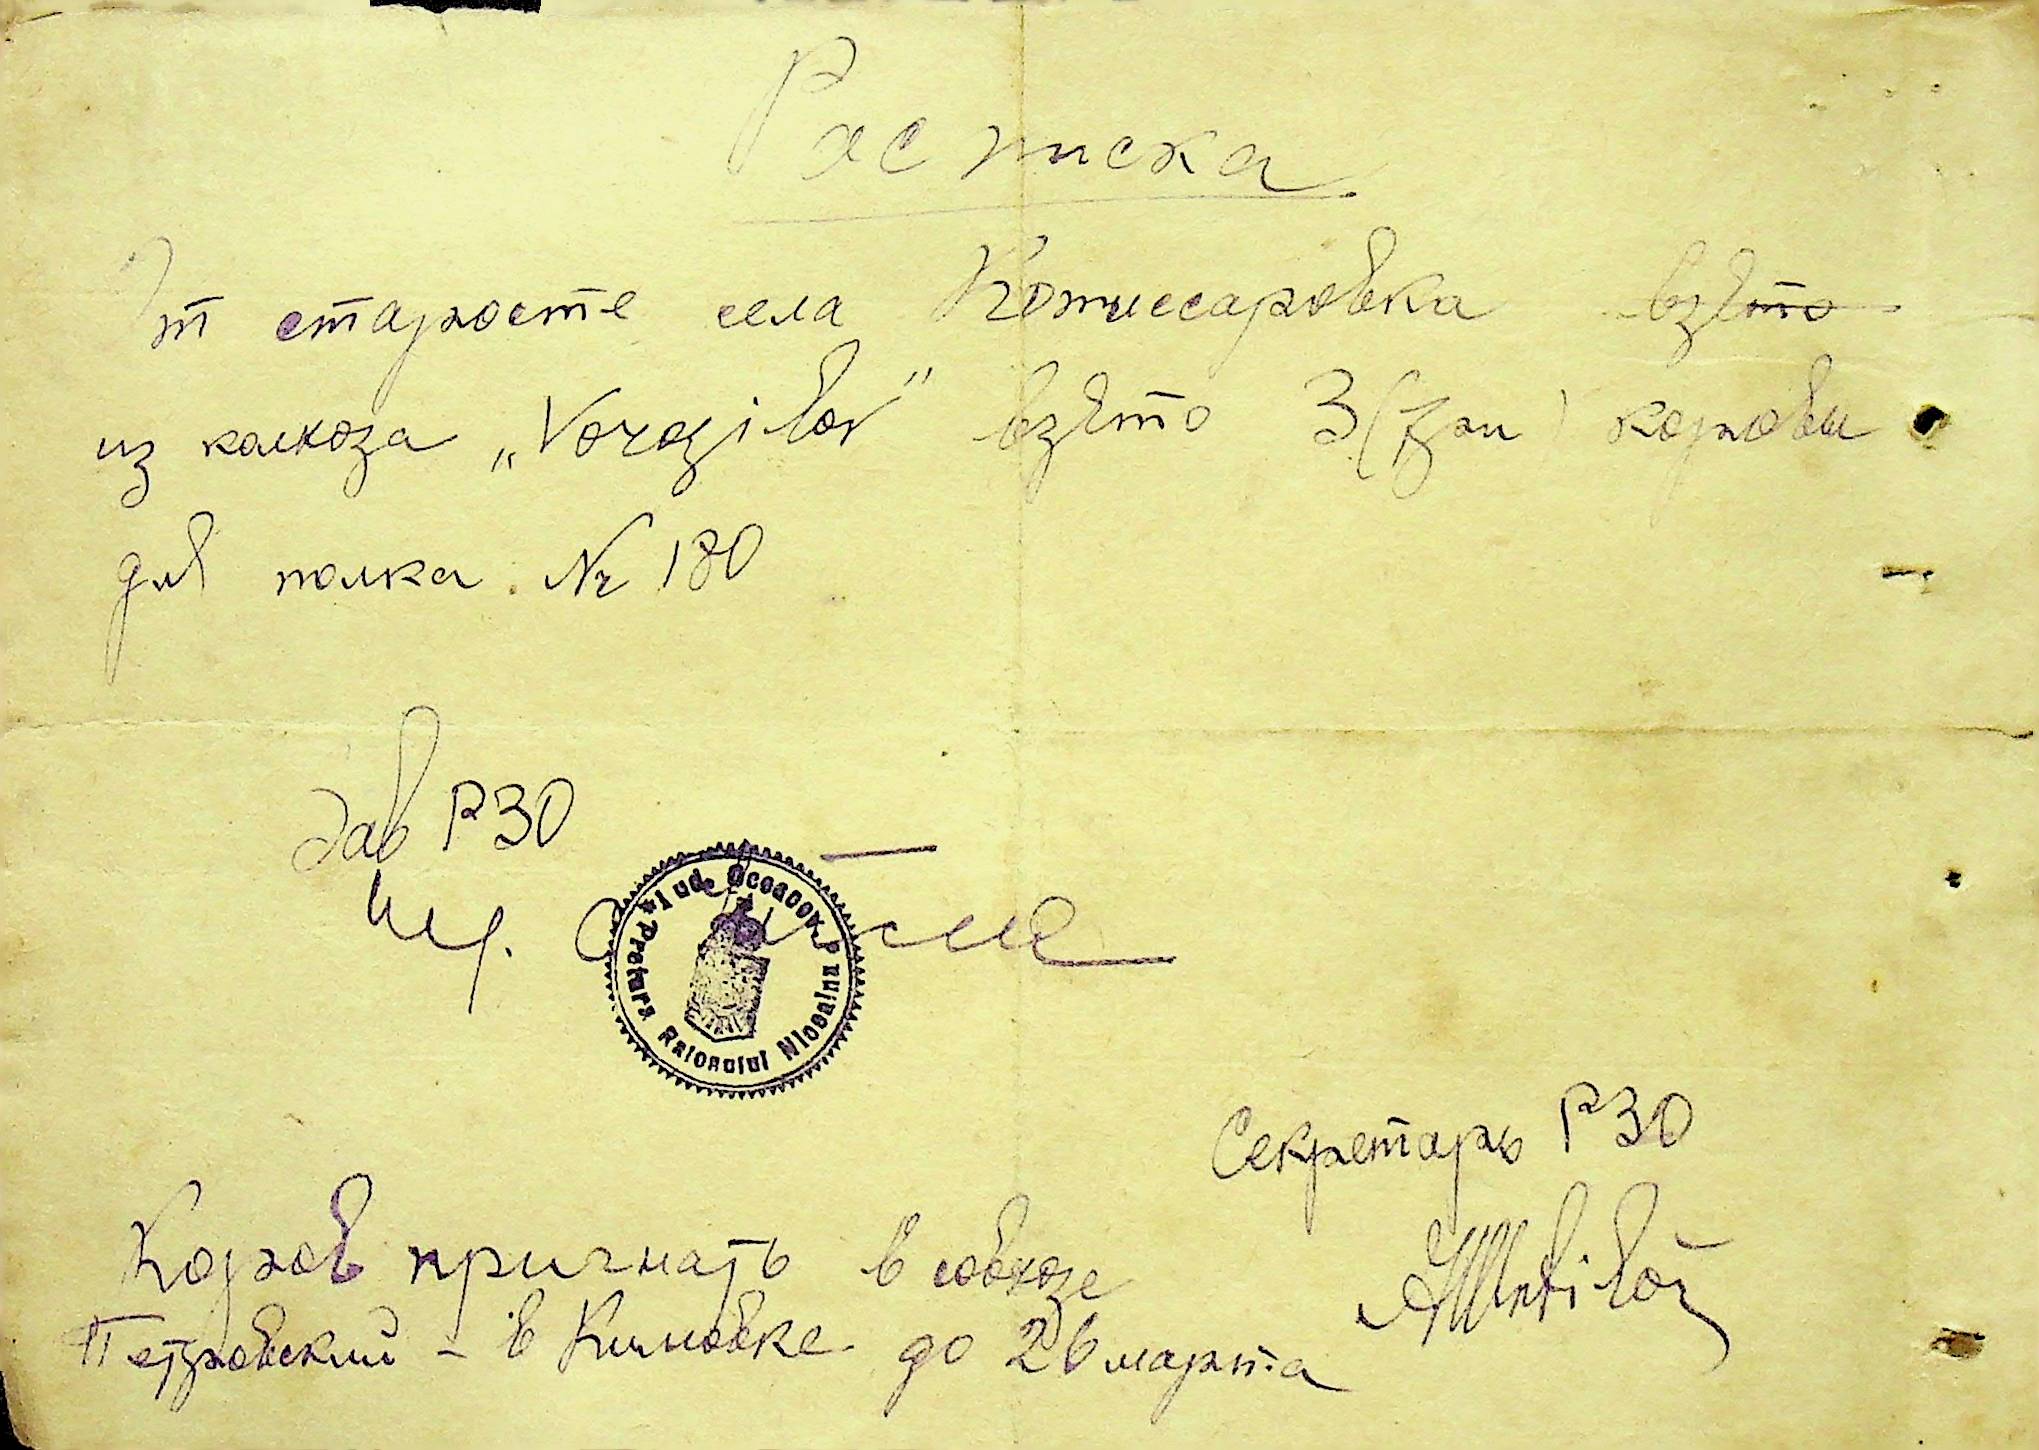 Расписка
От старосте села Комиссаровка взято
из колхоза „Voroșilov” взято 3 (три) коровы
для полка Nr 180
Зав РЗО
* Jud. Oceacov * Pretura Raionului Nicoaina
Секретарь РЗО
Коров пригнать в совхозе
Петровский – в Кимовке до 26 марта